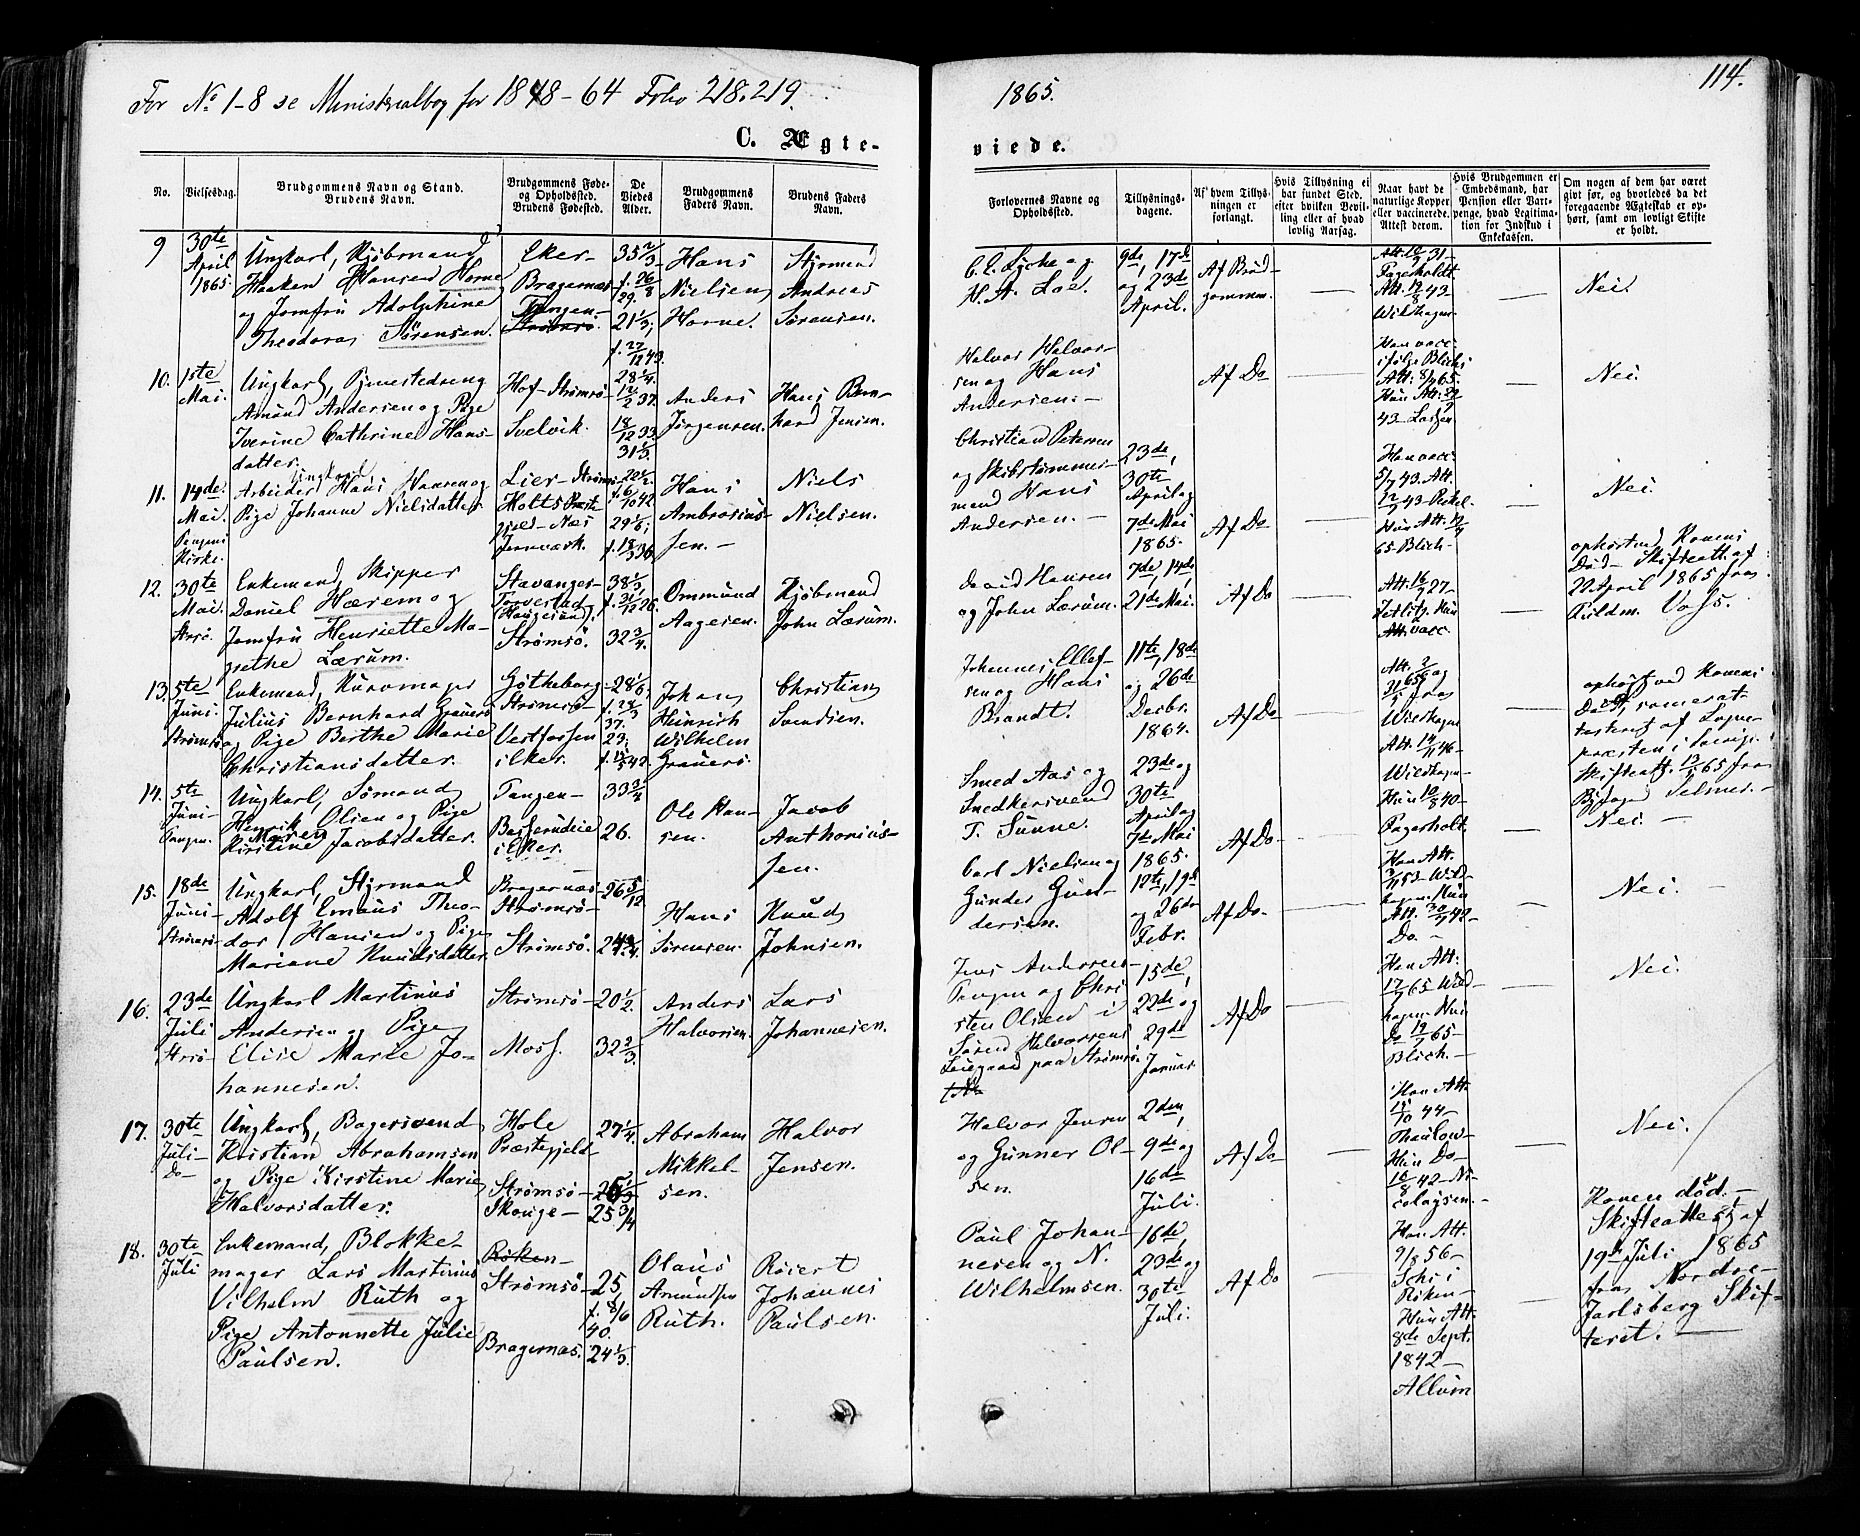 For No 1-8 se Ministerialbog for 1848-64 Folio 218.219.
1865.
114.
C. Ægte-
viede.
No.
Vielsesdag.
Brudgommens Navn og Stand.
Brudens Navn.
Brudgommens Føde-
og Opholdssted.
Brudens Fødested.
De
Viedes
Alder.
Brudgommens
Faders Navn.
Brudens Faders
Navn.
Forlovernes Navne og
Opholdssted.
Tillysnings-
dagene.
Af hvem Tillys-
ningen er
forlangt.
Hvis Tillysning ei
har fundet Sted,
efter hvilken Bevil-
ling eller af hvad
lovlig Aarsag.
Naar havt de
naturlige Kopper
eller vaccinerede.
Attest derom.
Hvis Brudgommen er
Embedsmand, har
Pension eller Vart-
penge, hvad Legitima-
tion for Indskud i
Enkekassen.
Om nogen af dem har været
givt før, og hvorledes da det
foregaaende Ægteskab er op-
hørt, samt om lovligt Skifte
er holdt.
9
30te
April
1865.
Ungkarl, Kjøbmand
Haaken Hansen Horne
og Jomfru Adolphine
Theodora Sørensen.
Eker-
Bragernæs
Tangen-
Strømsø.
35 2/3
f. 26/8
29.
21 1/3,
f. 27/12 43.
Hans
Nielsen
Horne.
Styrmand
Andreas
Sørensen.
C. C. Lyche og
H. A. Loe.
9de, 17de
og 23de
April.
Af Brud-
gommen.
Att. 19/8 43-
Wildhagen
Nei.
10.
1ste
Mai.
Ungkarl, Tjenestedreng
Amund Andersen og Pige
Iverine Cathrine Hans-
datter.
Hof-Strømsø-
Svelvik.
28 1/4.
12/2 37.
18/12 33
31 1/3.
Anders
Jørgensen.
Hans Bern-
hard Jensen.
Halvor Halvor-
sen og Hans
Andersen.-
Af Do
Han vacc.
ifølge Blichs
Att: 8/4 65.
Nei.
11.
14de
Mai.
Tangens
Kirke.
Ungkarl
Arbeider Hans Hansen og
Pige Johanne Nielsdatter
Lier-Strømsø
Holts Præste-
gjeld-Næs
Jernværk.
29 1/6,
f. 18/3 36.
Hans
Ambrosius-
sen.-
Niels
Nielsen.
Christian Petersen
og Skibstømmer-
mand Hans
Andersen.-
23de,
30te
April og
7de Mai
1865.
Af Do
Han vacc.
65-Blich-
Nei.
12.
30te
Mai.
Strsø.
Enkemand, Skipper
Daniel Hærem og
Jomfru Henriette Ma-
grethe Lærum.
Stavanger-
Torvestad
(Haugesund).
Strømsø.
38 1/2
f. 31/12 26.
32 3/4.
Ommund
Aagesen.
Kjøbmand
John Lærum.
David Hansen
og John Lærum.
7de, 14de,
21de Mai.
Af Do
Att. 16/7 27-
Zetlitz. Hun
Att. vacc.
ophørt ved Konens
Død-Skifteatt. af
20 April 1865 fra
Fuldm. Voss.
13.
5te
Juni.
Strømsø
Enkemand, Kurvmager
Julius Bernhard Grauers
og Pige Berthe Marie
Christiansdatter.
Gøtheborg-
Strømsø-
Vestfossen
i Eker.
28 1/6,
37.
23,
Johan
Heinrich
Wilhelm
Grauers.
Christian
Svendsen.
Johannes Ellef-
sen og Hans
Brandt.
11te, 18de
og 26de
Decbr.
1864.
Af Do.
Wildhagen
Att. 14/11 46-
Wildhagen-
ophørt ved Konens
Død,
præsten i Sverige.
Skifteatt. 13/5 65 fra
Byfoged Selmer.-
14.
5te
Juni-
Tangen.
Ungkarl, Sømand
Henrik Olsen og Pige
Maren
Kirstine Jacobsdatter.
Tangen-
Basserudeie
i Eker.
33 3/4
26.
Ole Han-
sen.
Jacob
Anthonius-
sen.
Smed Aas og
Snedkersvend
T. Sunne.
23de og
30te
April og
7de Mai
1865.
Af Do-
Hun 19/8 40-
Pagerholt.
Nei.-
15.
18de
Juni-
Strømsø-
Ungkarl, Styrmand
Adolf Emaus Theo-
dor Hansen og Pige
Mariane Knudsdatter.
Bragernæs-
Strømsø-
Strømsø.
26 5/12
24 3/4.
Hans
Sørensen.
Knud
Johnsen.
Carl Nielsen og
Gunder Gun-
dersen.
12te, 19de
og 26de
Febr.
Af Do-
Han Att.
Att. 30/7 42-
Do.-
Nei.-
16.
23de
Juli
Strsø-
Ungkarl Martinus
Andersen og Pige
Elise Marie Jo-
hannesen.
Strømsø-
Moss.
20 1/2.
32 2/3.
Anders
Halvorsen.
Lars
Johannesen.
Jens Andersen-
Tangen og Chri-
sten Olsen i
Søren Halvorsens
Leiegaard paa Strømsø.
15de,
22de og
29de
Januar
Af Do
Han Att:
17/7 65 Wild-
hagen Hun
Do 19/7 65-
Blich.-
Nei.
17.
30te
Juli-
Do-
Ungkarl, Bagersvend
Kristian Abrahamsen
og Pige Kirstine Marie
Halvorsdatter.
Hole
Præstegjeld-
Strømsø-
Skouge-
27 1/4.
25 3/4
Abraham
Mikkel-
sen.
Halvor
Jensen.
Halvor Jensen
og Gunner Ol-
sen.
2den,
9de og
16de
Juli.
Af Do
Han Att.
15/10 44-
Thaulow-
Hun Do-
16/8 42-Ni-
colaysen.-
Nei.
18.
30te
Juli
Enkemand, Blokke-
mager Lars Martinius
Vilhelm Ruth og
Pige Antonnette Julie
Paulsen.
Røken-
Strømsø-
Bragernæs.
25,
f. 8/6
40.
24 1/3.
Olaus
Amundsen
Ruth.
Roiert
Johannes
Paulsen.
Paul Johan-
nesen og N.
Wilhelmsen.
16de,
23de og
30te
Juli.
Af Do
Han Att.
9/8 56-
Schi i
Røken-
Hun Att.
8de Sept.
1842-
Allum
Konen død.-
Skifteattest af
19de Juli 1865
fra Nordre-
Jarlsberg Skif-
teret.-